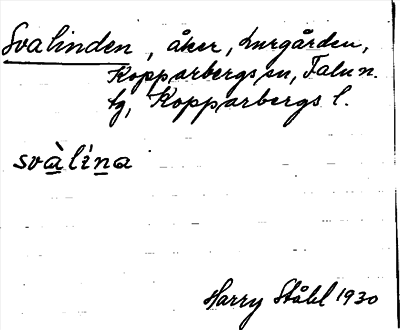 Svalinden, åker, Lurgården,
Kopparbergs sn, Falu n.
tg, Kopparbergs l.
svàlína
Harry Ståhl 1930